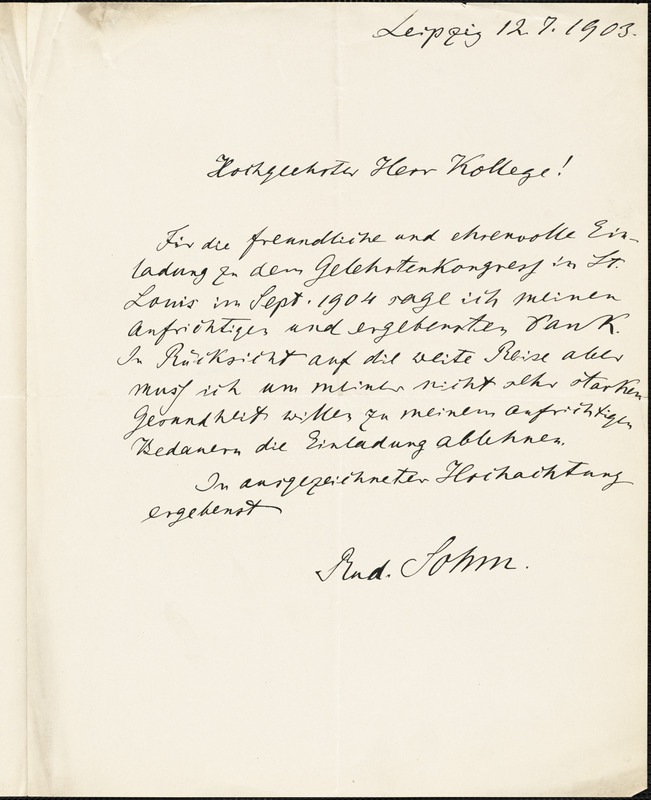 Leipzig 12.7.1903.
Hochgeehrter Herr Kollege!
Für die freundliche und ehrenvolle Ein-
ladung zu dem Gelehrtenkongress in St.
Louis im Sept. 1904 sage ich meinen
aufrichtigen und ergebensten Dank.
In Rücksicht auf die weite Reise aber
muss ich um meiner nicht sehr starken
Gesundheit willen zu meinem aufrichtigen
Bedauern die Einladung ablehnen.
In ausgezeichneter Hochachtung
ergebenst
Rud. Sohm.